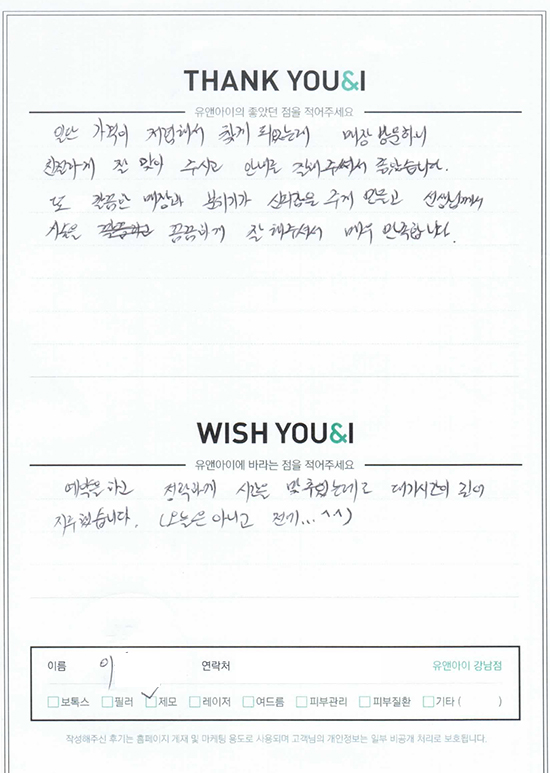 THANK YOU&I
유앤아이의 좋았던 점을 적어주세요
일단 가격이 저렴해서 찾게 되었는데 매장 방문하니
친절하게 잘 맞이 주시고 안내로 잘해주셔서 좋았습니다.
또 깔끔한 매장과 분위기가 신뢰감을 주게 만들고 선생님께서
시술을 꼼꼼하게 잘 해주셔서 매우 만족합니다.
WISH YOU&I
유앤아이에 바라는 점을 적어주세요
예약을 하고 정확하게 시간을 맞추었는데도 대기시간이 길어
지루했습니다. (오늘은 아니고 전기... ^^)
이름 이 연락처 유앤아이 강남점
보톡스 필러 제모 레이저 여드름 피부관리 피부질환 기타 ( )
작성해주신 후기는 홈페이지 게재 및 마케팅 용도로 사용되며 고객님의 개인정보는 일부 비공개 처리로 보호됩니다.